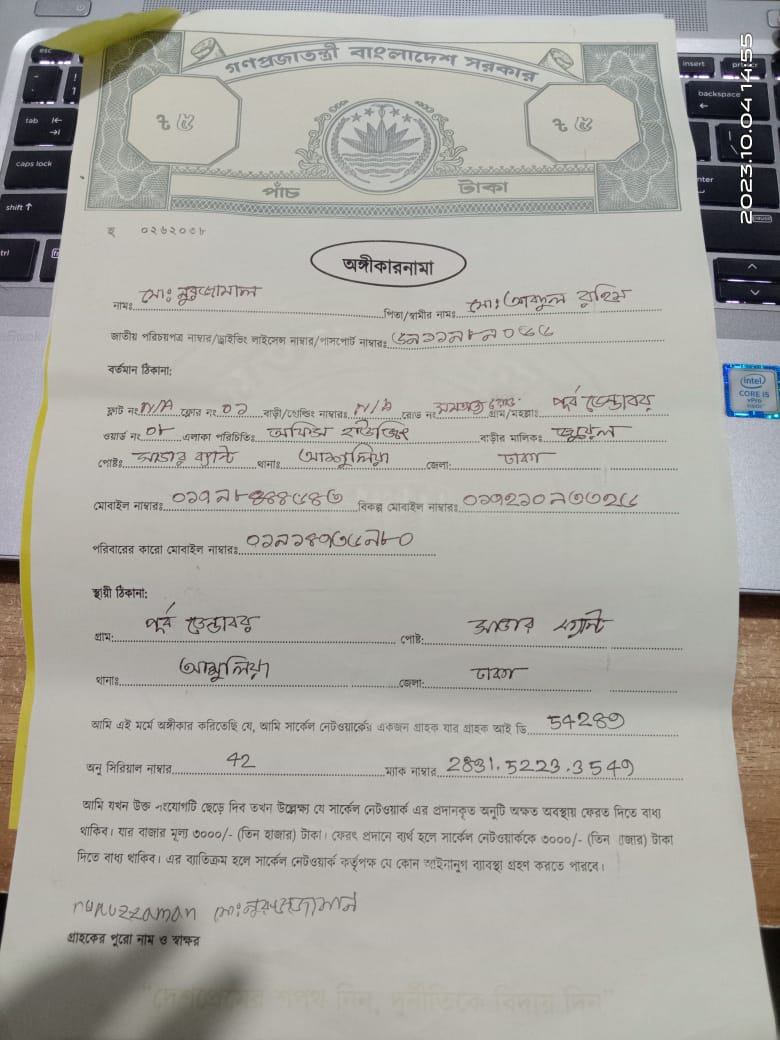 গণপ্রজাতন্ত্রী বাংলাদেশ সরকার
৳ ৫ ৳ ৫
পাঁচ টাকা
হ ০২৬২০৩৮
অঙ্গীকারনামা
নামঃ মোঃ নুরুজ্জামান পিতা/স্বামীর নামঃ মোঃ আব্দুল রহিম
জাতীয় পরিচয়পত্র নাম্বার/ড্রাইভিং লাইসেন্স নাম্বার/পাসপোর্ট নাম্বারঃ
বর্তমান ঠিকানা:
ফ্লাট নং N/A ফ্লোর নং ০১ বাড়ী/হোল্ডিং নাম্বারঃ N/A রোড নং গ্রাম/মহল্লাঃ পূর্ব ডেন্ডাবর
ওয়ার্ড নং ০৮ এলাকা পরিচিতিঃ অফিস হাউজিং বাড়ীর মালিকঃ জুয়েল
পোষ্টঃ সাভার ক্যান্ট থানাঃ আশুলিয়া জেলা: ঢাকা
মোবাইল নাম্বারঃ বিকল্প মোবাইল নাম্বারঃ
পরিবারের কারো মোবাইল নাম্বারঃ
স্থায়ী ঠিকানা:
গ্রাম: পূর্ব ডেন্ডাবর পোষ্ট: সাভার ক্যান্ট
থানাঃ আশুলিয়া জেলা: ঢাকা
আমি এই মর্মে অঙ্গীকার করিতেছি যে, আমি সার্কেল নেটওয়ার্কের একজন গ্রাহক যার গ্রাহক আই ডি 54289
অনু সিরিয়াল নাম্বার 42 ম্যাক নাম্বার 2831.5223.3549
আমি যখন উক্ত সংযোগটি ছেড়ে দিব তখন উল্লেক্ষ্য যে সার্কেল নেটওয়ার্ক এর প্রদানকৃত অনুটি অক্ষত অবস্থায় ফেরত দিতে বাধ্য
থাকিব। যার বাজার মূল্য ৩০০০/- (তিন হাজার) টাকা। ফেরৎ প্রদানে ব্যর্থ হলে সার্কেল নেটওয়ার্ককে ৩০০০/- (তিন হাজার) টাকা
দিতে বাধ্য থাকিব। এর ব্যাতিক্রম হলে সার্কেল নেটওয়ার্ক কর্তৃপক্ষ যে কোন আইনানুগ ব্যাবস্থা গ্রহণ করতে পারবে।
nuruzzaman মোঃ নুরুজ্জামান
গ্রাহকের পুরো নাম ও স্বাক্ষর
"দেশপ্রেমের শপথ নিন, দুর্নীতিকে বিদায় দিন"
2023.10.04 14:55
esc
tab
caps lock
shift
insert
backspace
pause
intel
CORE i5
vPro
inside